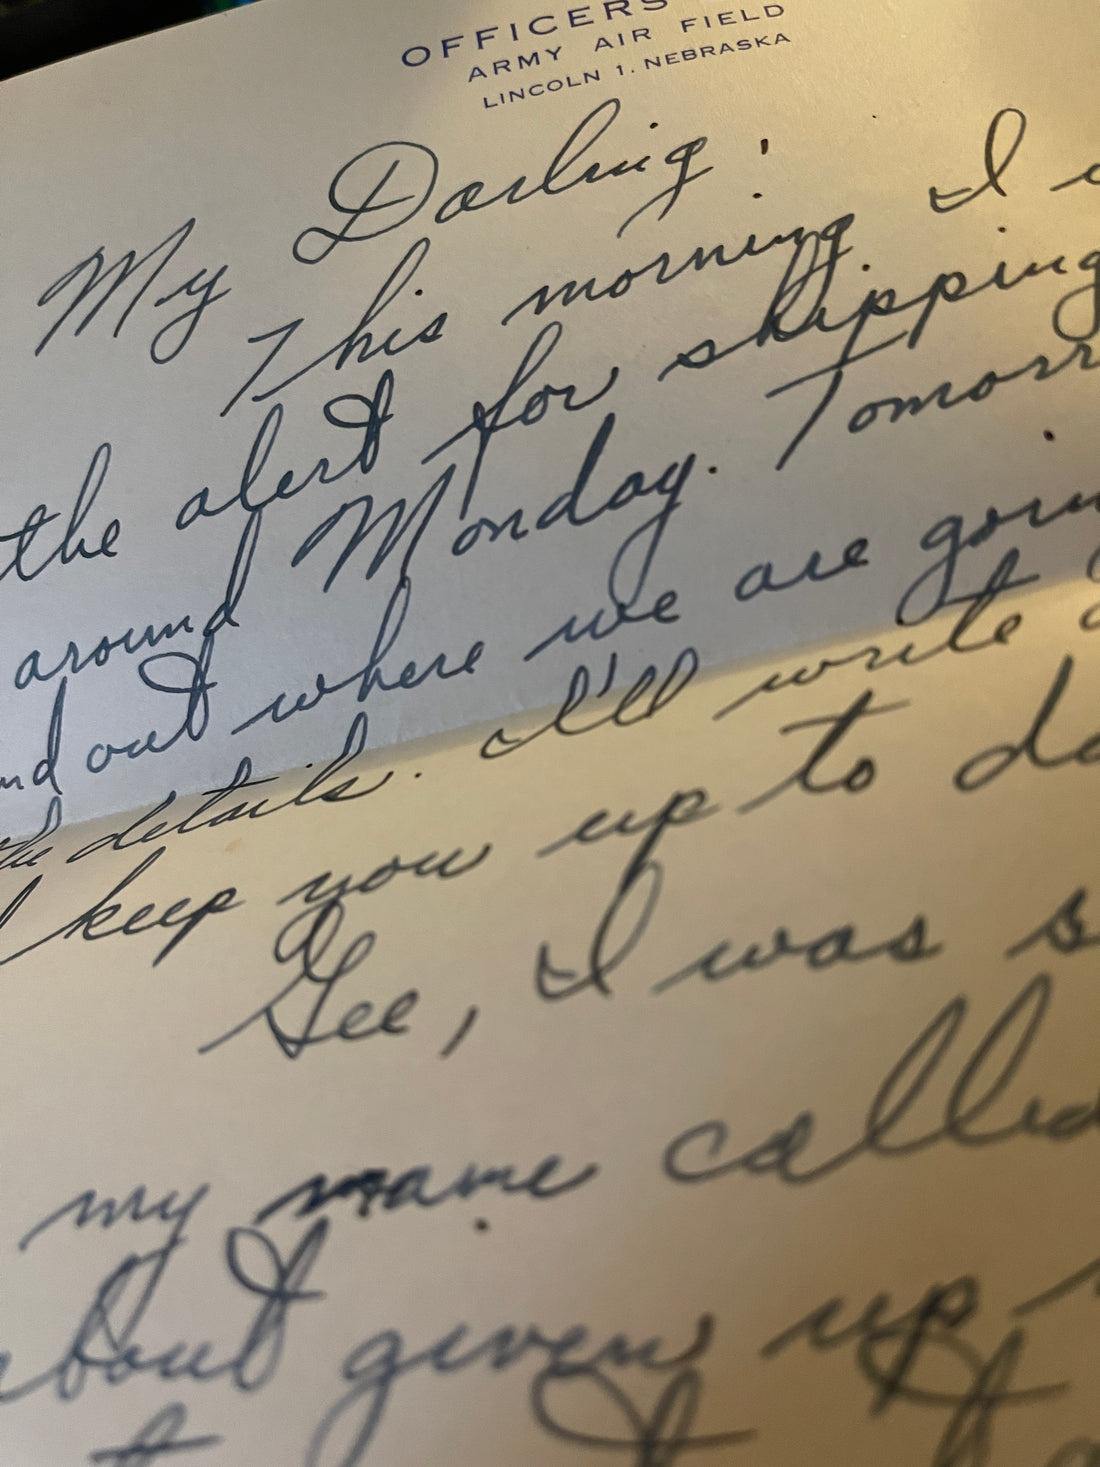 OFFICERS
ARMY AIR FIELD
LINCOLN 1, NEBRASKA
My Darling:
This morning I
the alert for shipping
around Monday. Tomorr
nd out where we are goin
the details. I'll write
keep you up to da
Gee, I was s
my name called
about given up